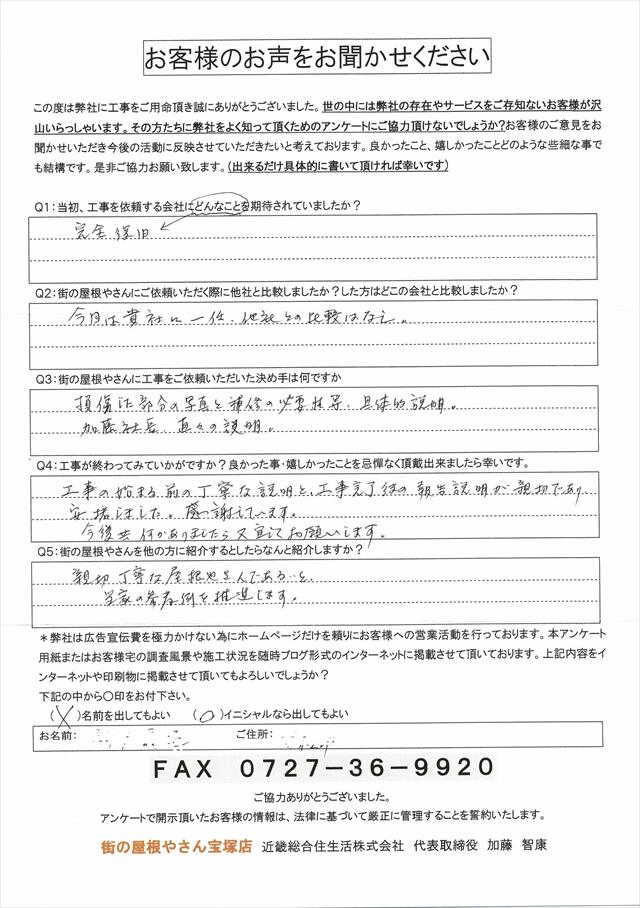 お客様のお声をお聞かせください
この度は弊社に工事をご用命頂き誠にありがとうございました。世の中には弊社の存在やサービスをご存知ないお客様が沢
山いらっしゃいます。その方たちに弊社をよく知って頂くためのアンケートにご協力頂けないでしょうか?お客様のご意見をお
聞かせいただき今後の活動に反映させていただきたいと考えております。良かったこと、嬉しかったことどのような些細な事で
も結構です。是非ご協力お願い致します。(出来るだけ具体的に書いて頂ければ幸いです)
Q1:当初、工事を依頼する会社にどんなことを期待されていましたか?
完全復旧
Q2:街の屋根やさんにご依頼いただく際に他社と比較しましたか?した方はどこの会社と比較しましたか?
今回は貴社に一任、他社との比較はなし。
Q3:街の屋根やさんに工事をご依頼いただいた決め手は何ですか
損傷した部分の写真と補修の必要性等、具体的説明。
加藤社長、直々の説明。
Q4:工事が終わってみていかがですか?良かった事・嬉しかったことを忌憚なく頂戴出来ましたら幸いです。
工事の始まる前の丁寧な説明と、工事完了後の報告説明が親切であり、
安堵しました。感謝しています。
今後共何かありましたら又宜しくお願いします。
Q5:街の屋根やさんを他の方に紹介するとしたらなんと紹介しますか?
親切丁寧な屋根やさんであると、
当家の施工例を推進します。
*弊社は広告宣伝費を極力かけない為にホームページだけを頼りにお客様への営業活動を行っております。本アンケート
用紙またはお客様宅の調査風景や施工状況を随時ブログ形式のインターネットに掲載させて頂いております。上記内容をイ
ンターネットや印刷物に掲載させて頂いてもよろしいでしょうか?
下記の中から〇印をお付下さい。
(X)名前を出してもよい (○)イニシャルなら出してもよい
お名前: ご住所:
FAX 0727-36-9920
ご協力ありがとうございました。
アンケートで開示頂いたお客様の情報は、法律に基づいて厳正に管理することを誓約いたします。
街の屋根やさん宝塚店 近畿総合住生活株式会社 代表取締役 加藤 智康